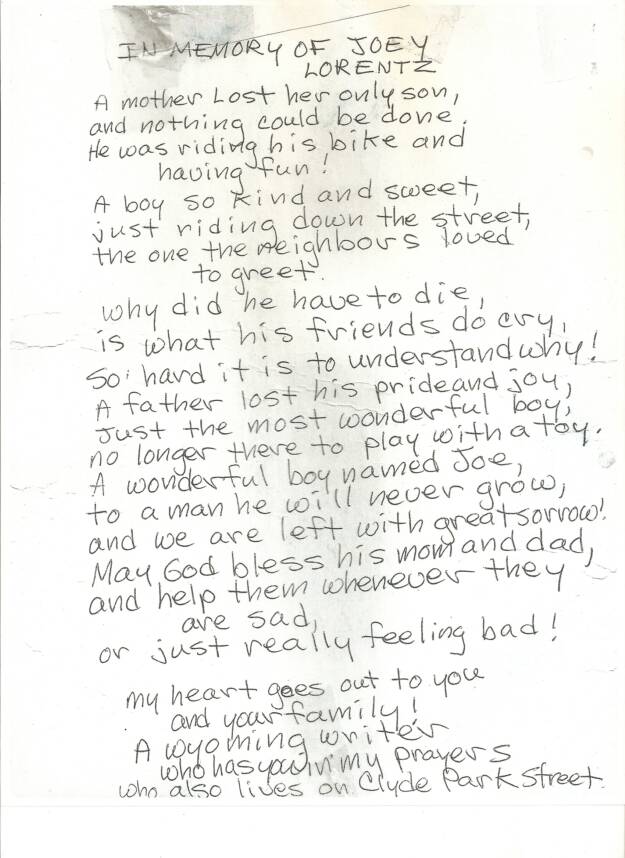 IN MEMORY OF JOEY
LORENTZ
A mother Lost her only son,
and nothing could be done.
He was riding his bike and
having fun!
A boy so kind and sweet,
just riding down the street,
the one the neighbours loved
to greet.
why did he have to die,
is what his friends do cry,
So hard it is to understand why!
A father lost his pride and joy,
Just the most wonderful boy,
no longer there to play with a toy.
A wonderful boy named Joe,
to a man he will never grow,
and we are left with great sorrow!
May God bless his mom and dad,
and help them whenever they
are sad,
or just really feeling bad!
my heart goes out to you
and your family!
A wyoming writer
who has you in my prayers
who also lives on Clyde Park Street.